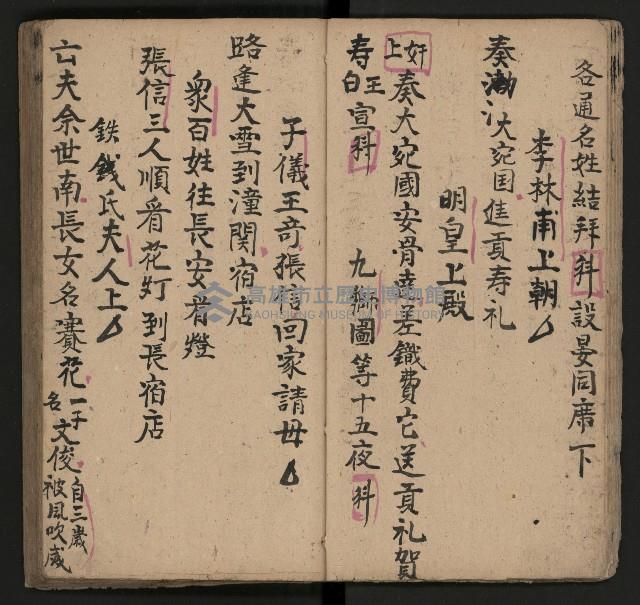 各通名姓結拜 科 設晏同席 下
李林甫上朝
奏渤氵大宛国進貢寿礼
明皇上殿
奸上奏大宛國安骨達差鐵費它送貢礼賀
寿王白宣科 九獅圖等十五夜科
子儀王奇張信回家請母
路逢大雪到潼関宿店
眾百姓往長安看燈
張信三人順看花灯到長宿店
鉄錢氏夫人上
亡夫余世南長女名賽花一子名文俊自三歲被風吹
高雄市立歷史博物館
KAOHSIUNG MUSEUM OF HISTORY